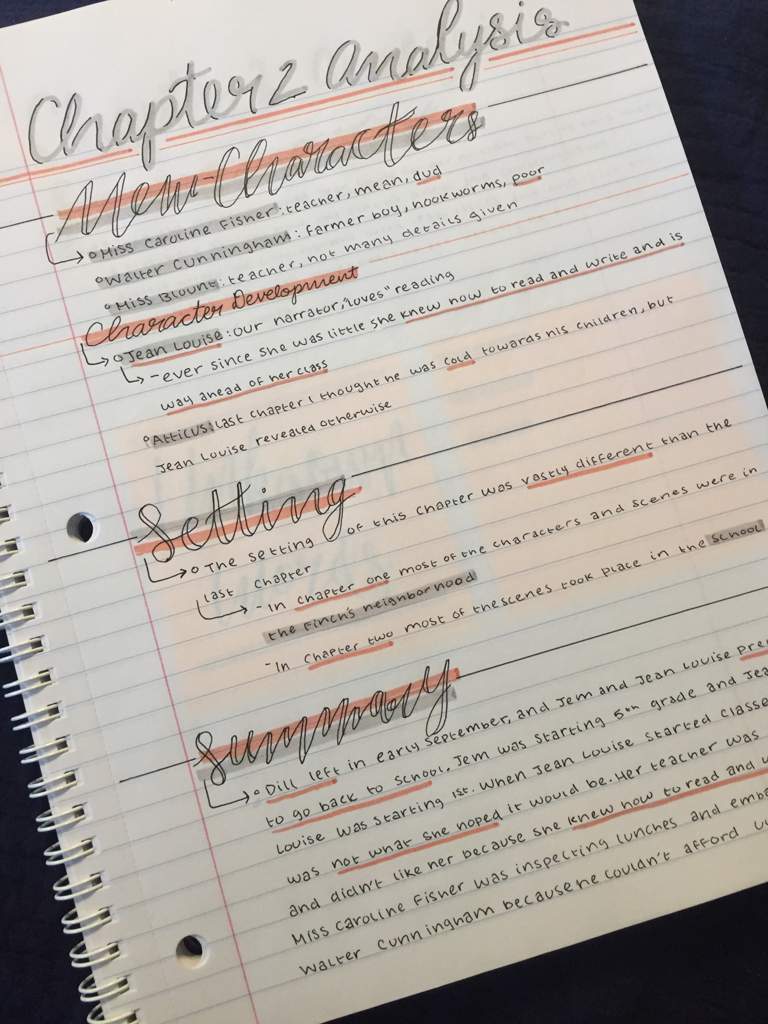 Chapter 2 Analysis
New Characters
Miss Caroline Fisher: teacher, mean, dud
Walter Cunningham: farmer boy, hookworms, poor
Miss Blount: teacher, not many details given
Character Development
Jean Louise: our narrator, "loves" reading
- ever since she was little she knew how to read and write and is
way ahead of her class
Atticus: last chapter I thought he was cold towards his children, but
Jean Louise revealed otherwise
Setting
The setting of this chapter was vastly different than the
last chapter
- In chapter one most of the characters and scenes were in
the Finch's neighborhood
- In chapter two most of the scenes took place in the school
Summary
Dill left in early September, and Jem and Jean Louise pre
to go back to school. Jem was starting 5th grade and Jea
Louise was starting 1st. When Jean Louise started classe
was not what she hoped it would be. Her teacher was
and didn't like her because she knew how to read and w
Miss Caroline Fisher was inspecting lunches and emba
Walter Cunningham because he couldn't afford